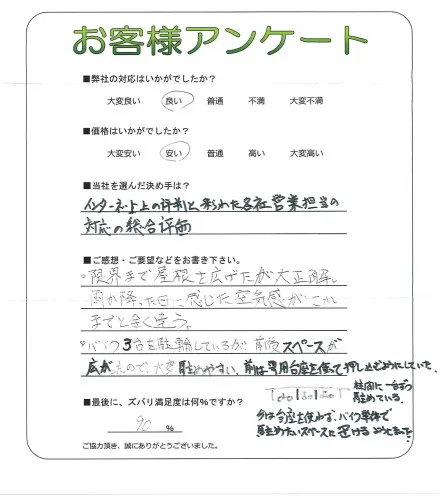 お客様アンケート
■弊社の対応はいかがでしたか？
大変良い 良い 普通 不満 大変不満
■価格はいかがでしたか？
大変安い 安い 普通 高い 大変高い
■当社を選んだ決め手は？
インターネット上の評判と来られた各社営業担当の
対応の総合評価
■ご感想・ご要望などをお書き下さい。
・限界まで屋根を広げたが大正解。
雨が降った日に感じた空気感がこれ
までと全く違う。
・バイク3台を駐輪しているが、前後スペースが
広がったので、大変駐めやすい。前は専用台座を使って押し込むようにしていた。
柱間に一台づつ
駐めている。
■最後に、ズバリ満足度は何％ですか？
90 %
今は台座を使わず、バイク単体で
駐めたいスペースに置けるようになった
ご協力頂き、誠にありがとうございました。